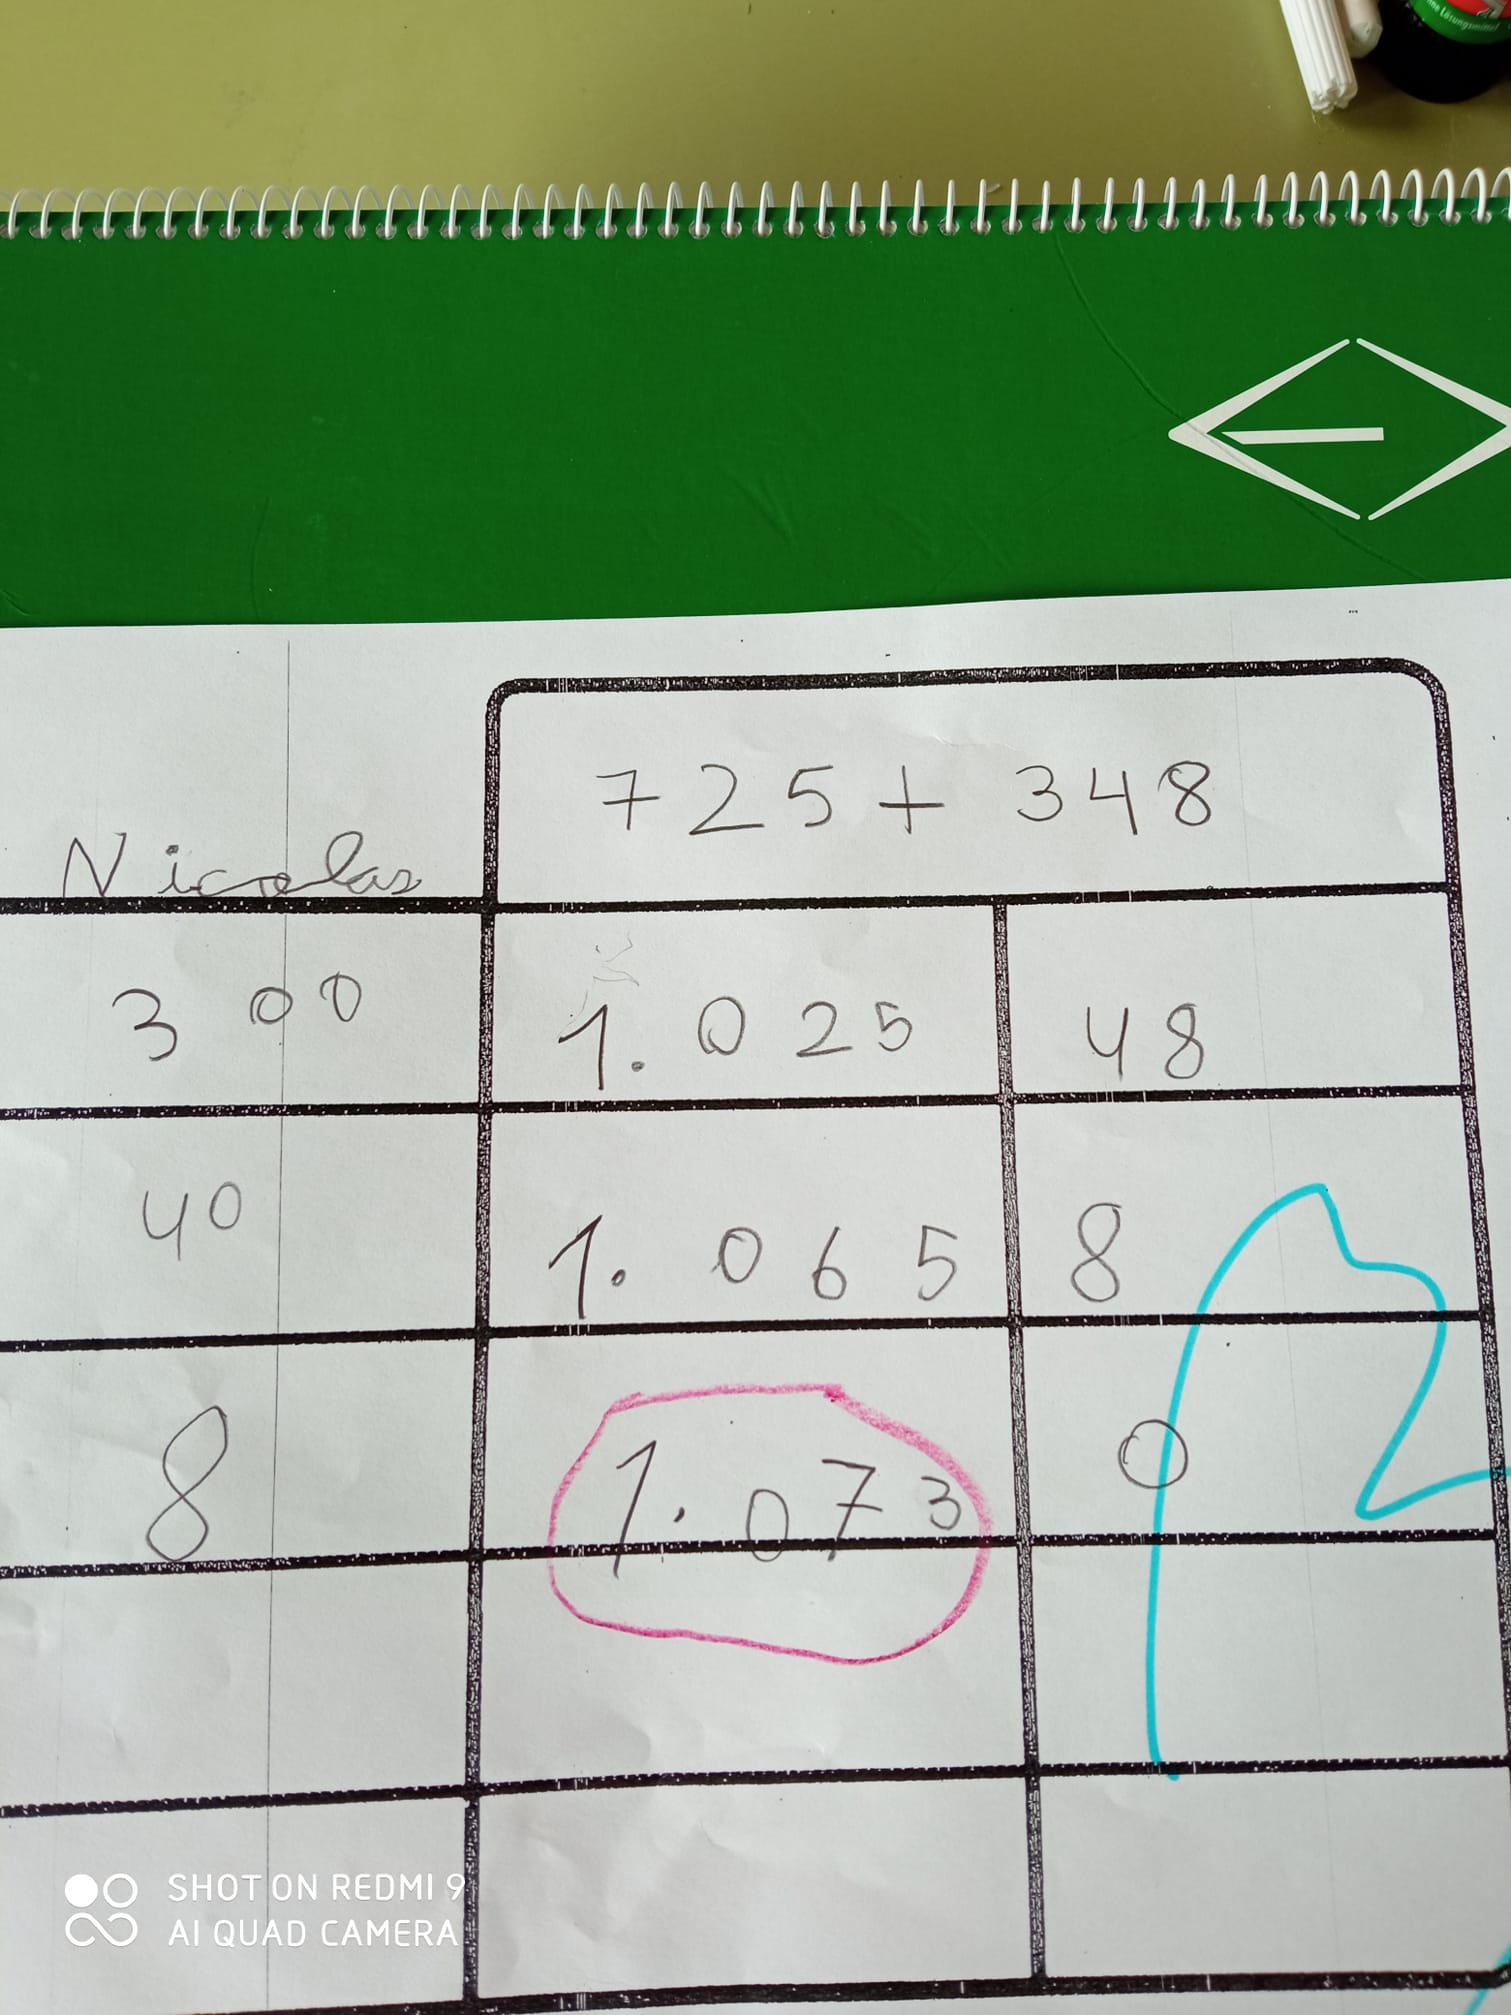 ne Lösungsmittel
725 + 348
Nicolas
300 1.025 48
40 1.065 8
8 1.073 0
SHOT ON REDMI 9
AI QUAD CAMERA